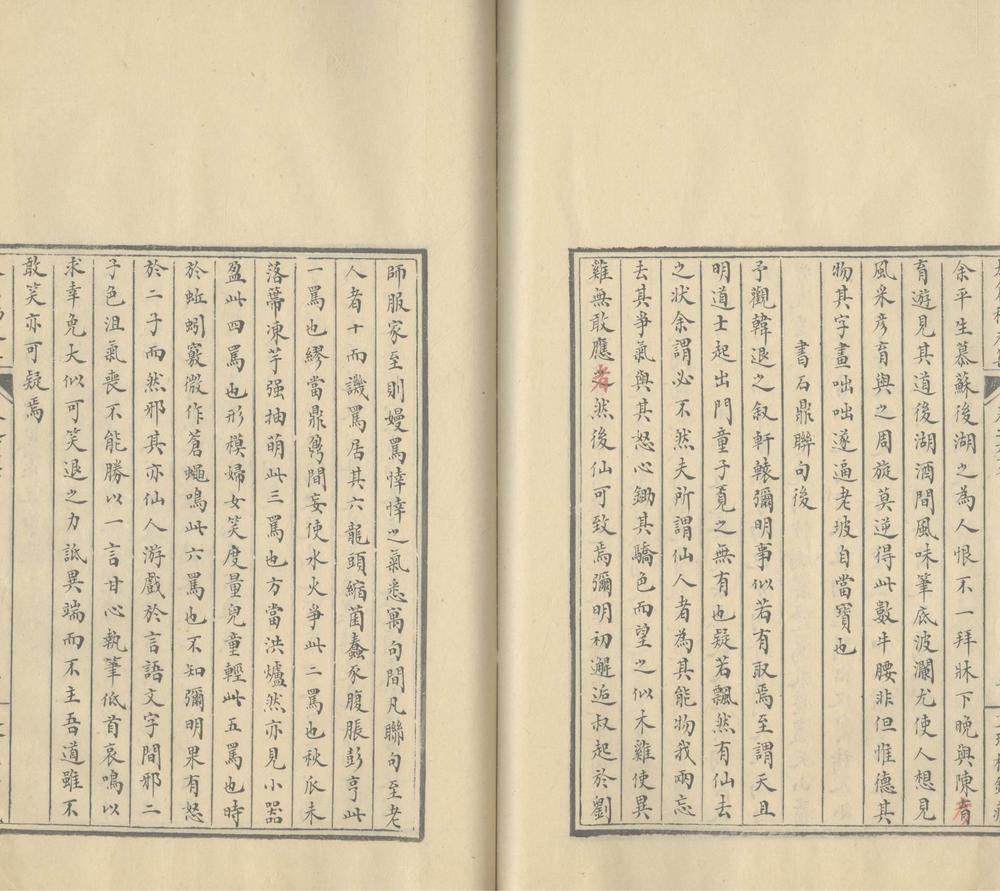 余平生慕蘇後湖之為人恨不一拜牀下晚與陳彥
育遊見其道後湖酒間風味筆底波瀾尤使人想見
風采彥育與之周旋莫逆得此數牛腰非但惟德其
物其字畫咄咄遂逼老坡自當寶也
書石鼎聯句後
予觀韓退之叙軒轅彌明事似若有取焉至謂天且
明道士起出門童子覓之無有也疑若飄然有仙去
之狀余謂必不然夫所謂仙人者為其能物我兩忘
去其爭氣與其怒心鋤其驕色而望之似木雞使異
雞無敢應者然後仙可致焉彌明初邂逅叔起於劉
師服家至則嫚罵悻悻之氣悉寓句間凡聯句至老
人者十而譏罵居其六龍頭縮菌蠢豕腹脹彭亨此
一罵也繆當鼎鼐間妄使水火爭此二罵也秋瓜未
落蔕凍芋强抽萌此三罵也方當洪爐然亦見小器
盈此四罵也形模婦女笑度量兒童輕此五罵也時
於蚯蚓竅微作蒼蠅鳴此六罵也不知彌明果有怒
於二子而然邪其亦仙人游戲於言語文字間邪二
子色沮氣喪不能勝以一言甘心執筆低首哀鳴以
求幸免大似可笑退之力詆異端而不主吾道雖不
敢笑亦可疑焉